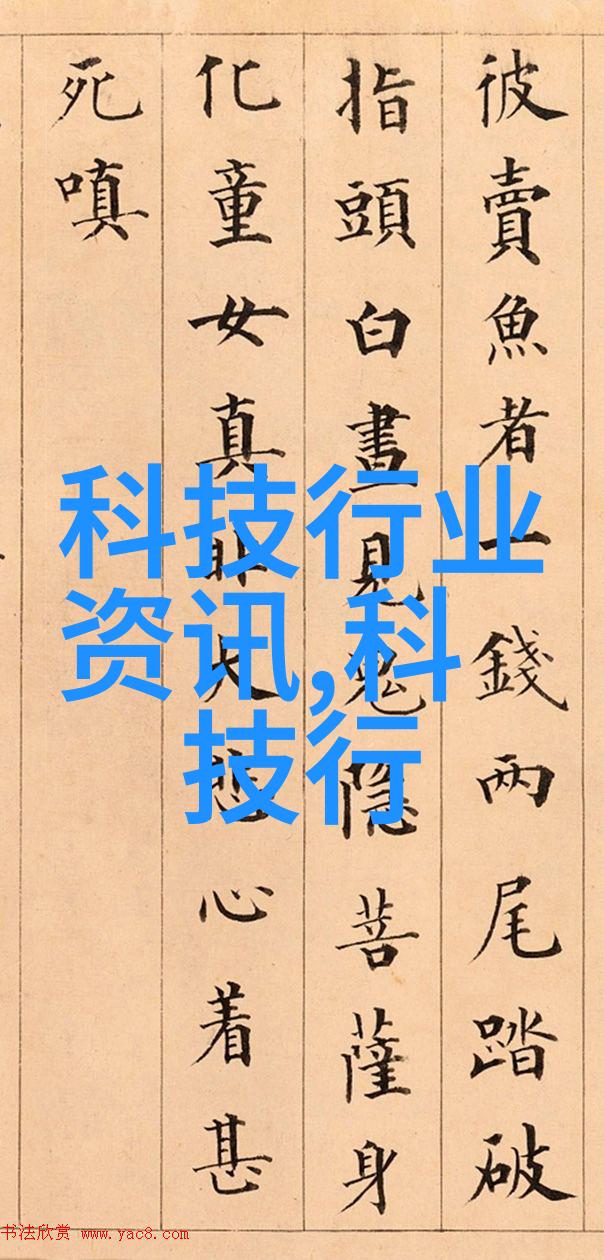 彼賣魚者一錢兩尾踏破
指頭白晝見鬼隱菩薩身
化童女真非大悲心着甚
死嗔
科技行业
资讯,科
技行
书法欣赏 www.yac8.com